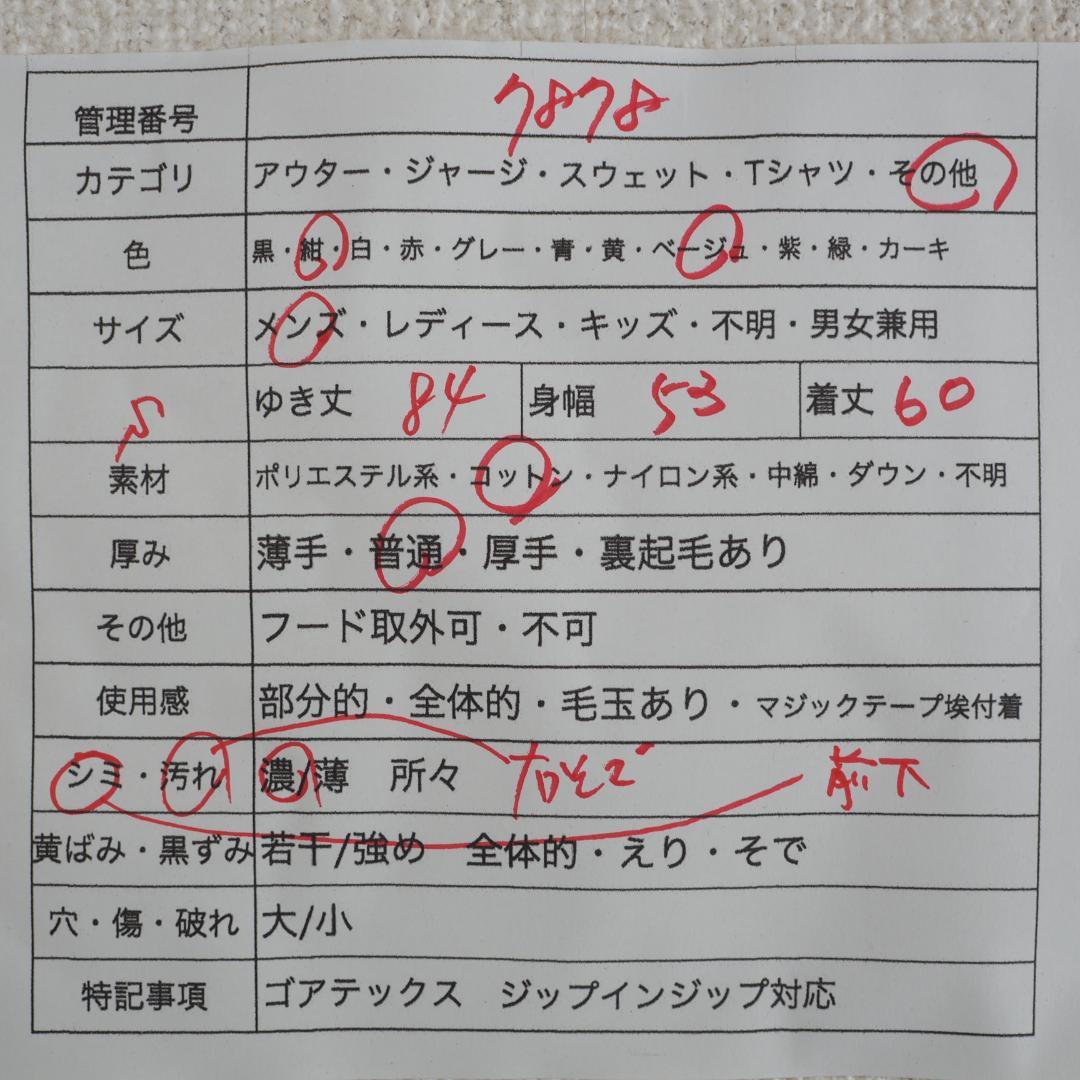 管理番号 7878
カテゴリ アウター・ジャージ・スウェット・Tシャツ・その他
色 黒・紺・白・赤・グレー・青・黄・ベージュ・紫・緑・カーキ
サイズ メンズ・レディース・キッズ・不明・男女兼用
S ゆき丈 84 身幅 53 着丈 60
素材 ポリエステル系・コットン・ナイロン系・中綿・ダウン・不明
厚み 薄手・普通・厚手・裏起毛あり
その他 フード取外可・不可
使用感 部分的・全体的・毛玉あり・マジックテープ埃付着
シミ・汚れ 濃/薄 所々 前下
黄ばみ・黒ずみ 若干/強め 全体的・えり・そで
穴・傷・破れ 大/小
特記事項 ゴアテックス ジップインジップ対応